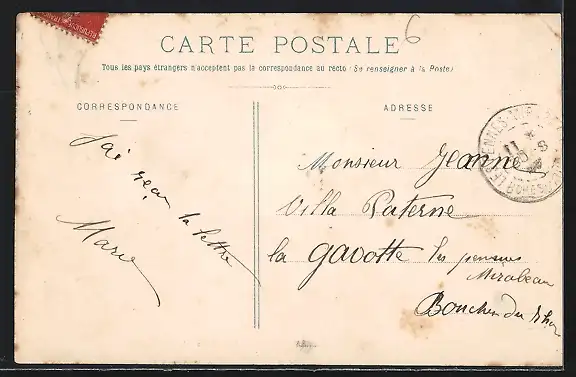 6
CARTE POSTALE
Tous les pays étrangers n'acceptent pas la correspondance au recto (Se renseigner à la Poste)
CORRESPONDANCE
ADRESSE
J'ai reçu ta lettre
Marie
Monsieur Jeanne
Villa Paterne
la Gavotte les pennes
Mirabeau
Bouches du Rhone
LES PENNES-MIRABEAU
11